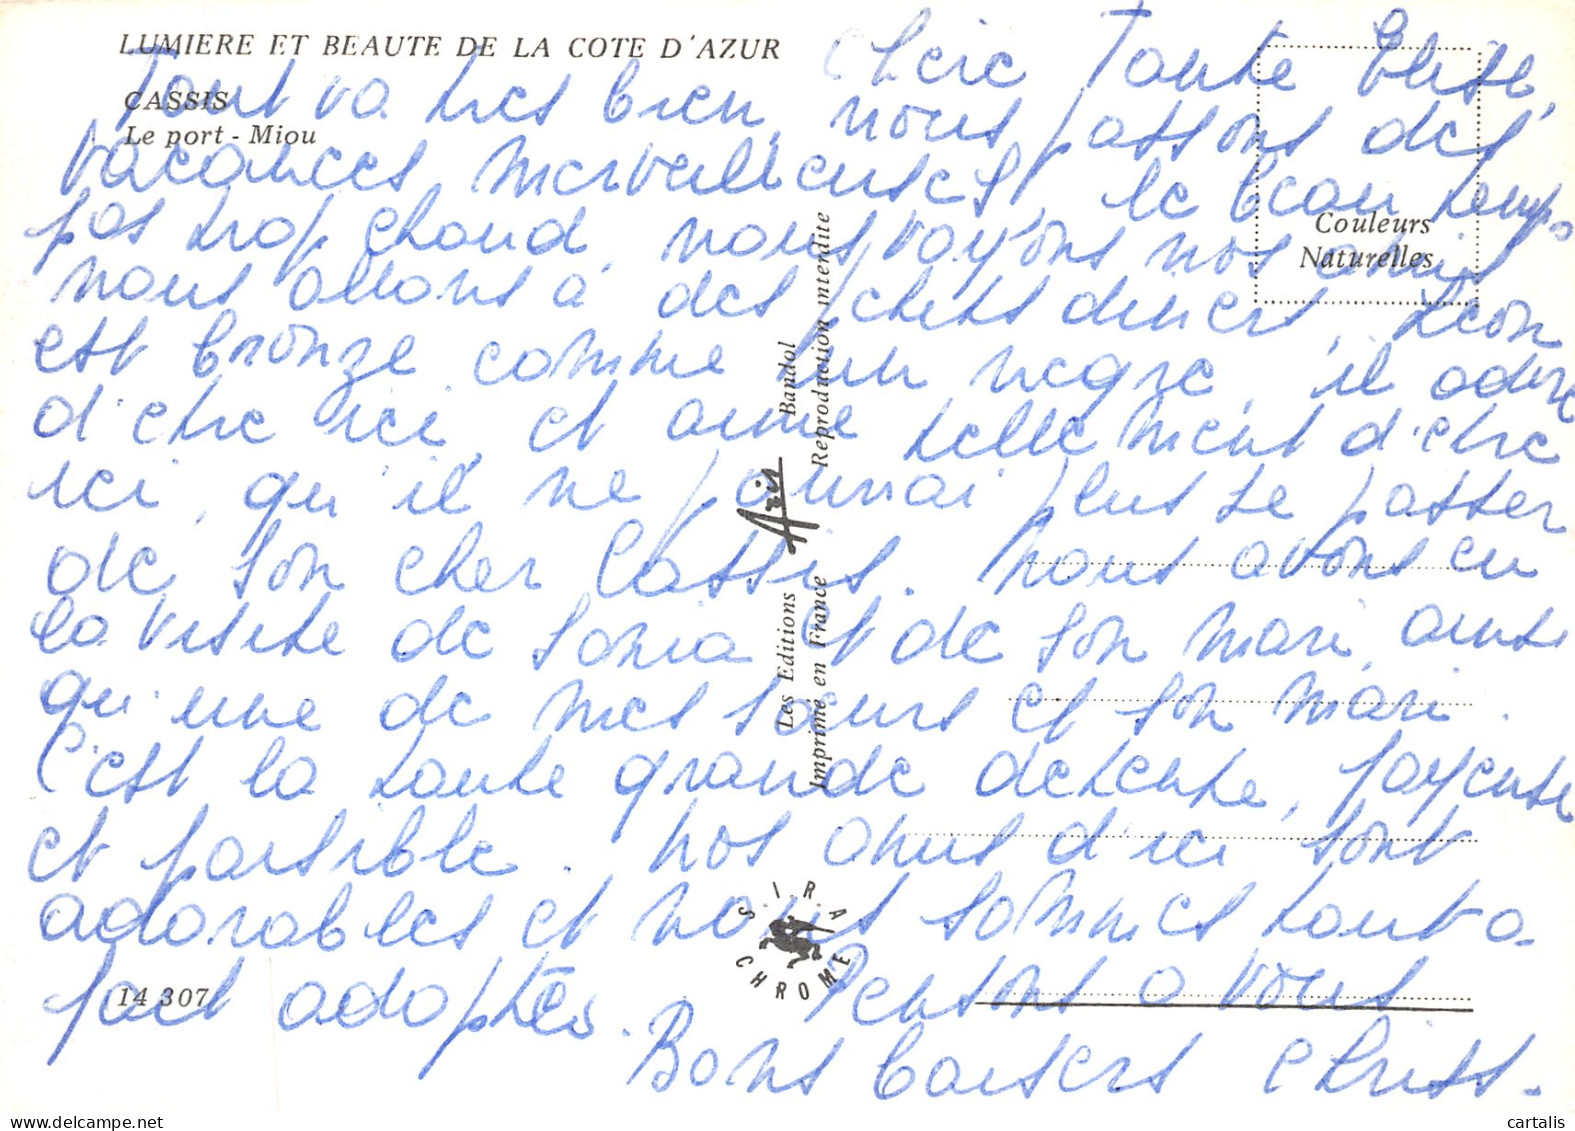 LUMIERE ET BEAUTE DE LA COTE D'AZUR
CASSIS
Le port - Miou
Couleurs
Naturelles
Chere Tante Elise,
Tout va tres bien, nous passons des
vacances merveilleuses, le beau temps
pas trop chaud, nous voyons nos amis
nous allons à des petits diners, Leon
est bronze comme un negre, il adore
d'etre ici, et aime tellement d'etre
ici, qu'il ne pourrai plus se passer
de son cher Cassis. Nous avons eu
la visite de Sonia et de son mari, ainsi
qu'une de mes soeurs et son mari.
C'est la toute grande detente, joyeuse
et paisible. Nos amis d'ici sont
adorables et nous sommes tout a
fait adoptés. Pensons a vous
Bons baisers Christ.
Les Editions Aris Bandol
Imprimé en France Reproduction interdite
S.I.R.A.
CHROME
14 307
cartalis